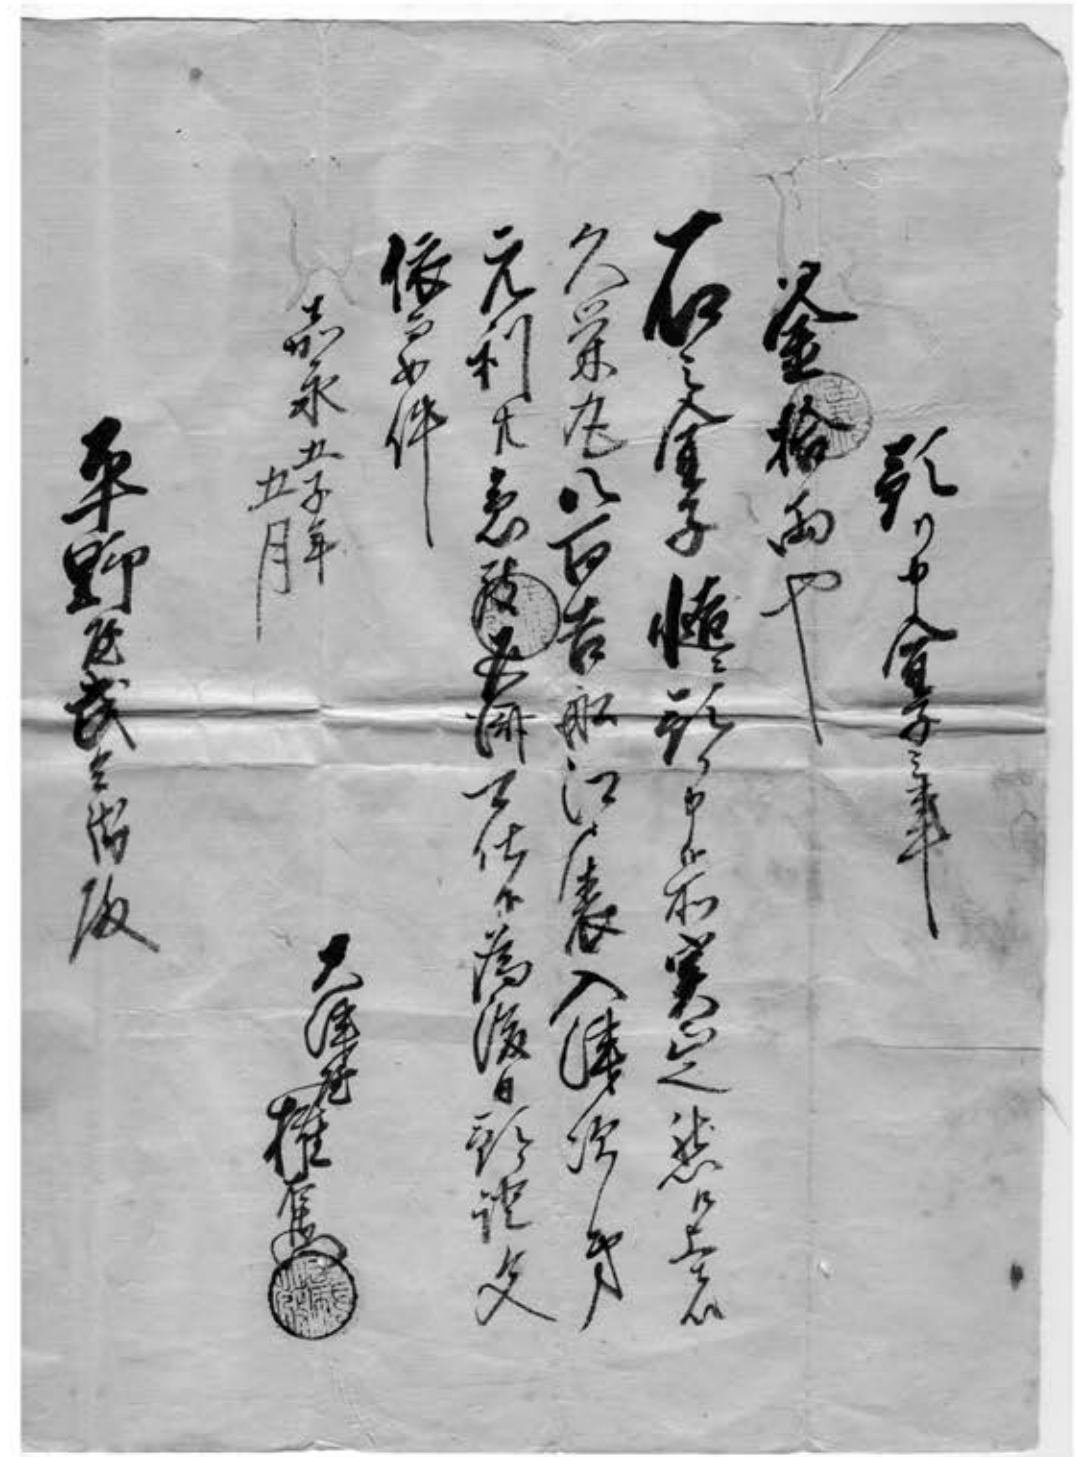 預り申金子之事
一金拾両也
右之金子慥ニ預り申所実正也然ル上者
久栄丸八百古船江戸表入津次第
元利共急度返済可仕候為後日預証文
依而如件
嘉永五子年
五月
大津屋権
平野屋武兵衛殿